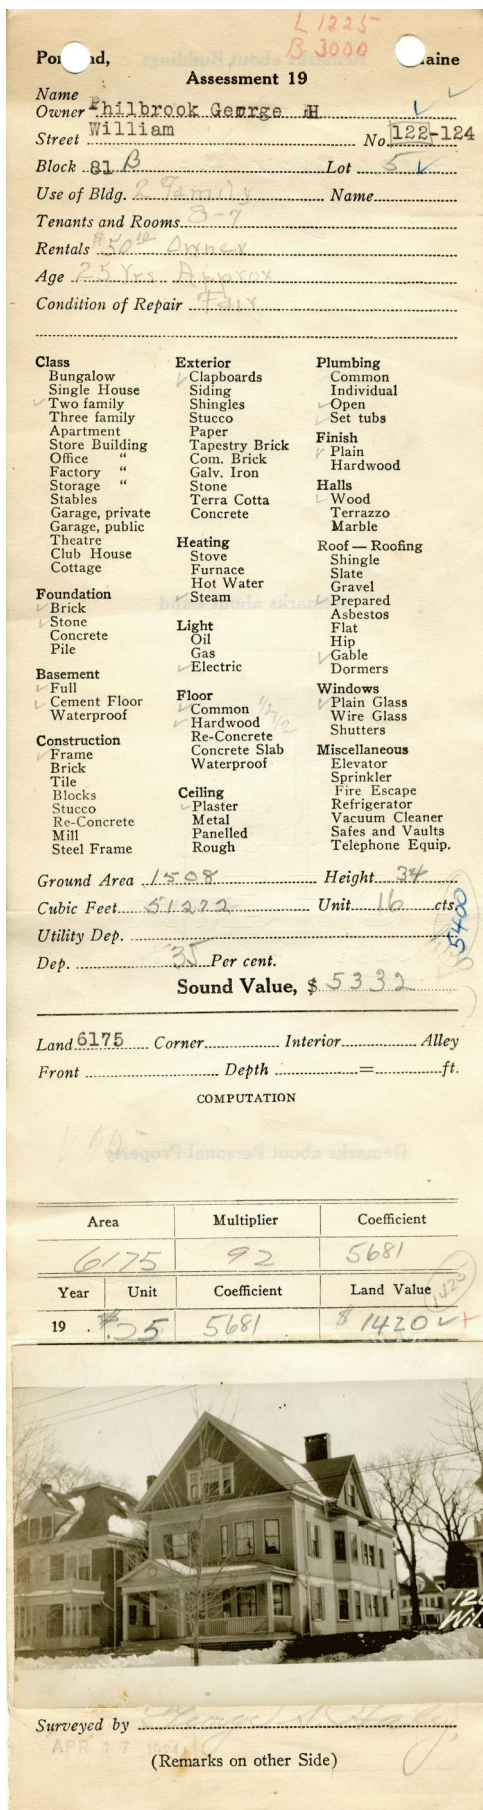 L 1225
B 3000
Po nd, aine
Assessment 19
Name
Owner Philbrook George H
Street William No. 122-124
Block 81 B Lot 5
Use of Bldg. 2 Family Name
Tenants and Rooms 8-7
Rentals $50 00 Owner
Age 25 Yrs Approx
Condition of Repair Fair
Class
Bungalow
Single House
Two family
Three family
Apartment
Store Building
Office "
Factory "
Storage "
Stables
Garage, private
Garage, public
Theatre
Club House
Cottage
Foundation
Brick
Stone
Concrete
Pile
Basement
Full
Cement Floor
Waterproof
Construction
Frame
Brick
Tile
Blocks
Stucco
Re-Concrete
Mill
Steel Frame
Exterior
Clapboards
Siding
Shingles
Stucco
Paper
Tapestry Brick
Com. Brick
Galv. Iron
Stone
Terra Cotta
Concrete
Heating
Stove
Furnace
Hot Water
Steam
Light
Oil
Gas
Electric
Floor
Common 1/2
Hardwood 1/2
Re-Concrete
Concrete Slab
Waterproof
Ceiling
Plaster
Metal
Panelled
Rough
Plumbing
Common
Individual
Open
Set tubs
Finish
Plain
Hardwood
Halls
Wood
Terrazzo
Marble
Roof — Roofing
Shingle
Slate
Gravel
Prepared
Asbestos
Flat
Hip
Gable
Dormers
Windows
Plain Glass
Wire Glass
Shutters
Miscellaneous
Elevator
Sprinkler
Fire Escape
Refrigerator
Vacuum Cleaner
Safes and Vaults
Telephone Equip.
Ground Area 1508 Height 34
Cubic Feet 51272 Unit 16 cts.
Utility Dep.
5400
Dep. 35 Per cent.
Sound Value, $ 5332
Land 6175 Corner Interior Alley
Front Depth = ft.
COMPUTATION
Area Multiplier Coefficient
6175 92 5681
Year Unit Coefficient Land Value 1425
19 . $ 25 5681 $ 1420
12
Wil
Surveyed by George
APR 17 1924
(Remarks on other Side)